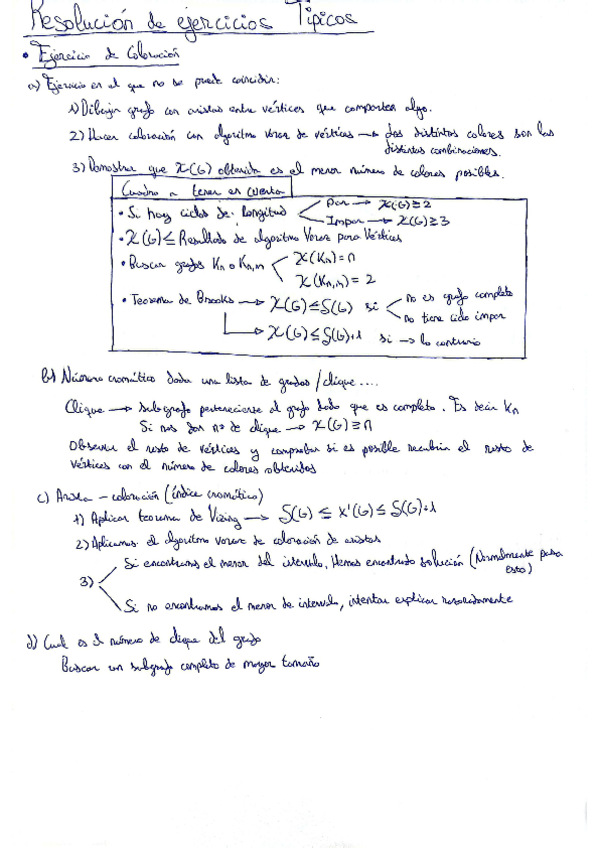 Resolución de ejercicios Típicos
• Ejercicio de Coloración
a) Ejercicio en el que no se puede coincidir:
1) Dibujar grafo con aristas entre vértices que comparten algo.
2) Hacer coloración con algoritmo voraz de vértices → dos distintos colores son las
distintas combinaciones.
3) Demostrar que χ(G) obtenida es el menor número de colores posibles.
Cuadro a tener en cuenta
• Si hay ciclos de longitud
Par → χ(G)≥2
Impar → χ(G)≥3
• χ(G) ≤ Resultado de algoritmo Voraz para Vértices
• Buscar grafos Kn o Kn,m
χ(Kn) = n
χ(Kn,m) = 2
• Teorema de Brooks → χ(G) ≤ δ(G) si
no es grafo completo
no tiene ciclo impar
→ χ(G) ≤ δ(G)+1 si → lo contrario
b) Número cromático dada una lista de grados / clique....
Clique → subgrafo perteneciente al grafo dado que es completo. Es decir Kn
Si nos dan nº de clique → χ(G) ≥ n
Observar el resto de vértices y comprobar si es posible recubrir el resto de
vértices con el número de colores obtenidos
c) Arista - coloración (índice cromático)
1) Aplicar teorema de Vizing → δ(G) ≤ χ'(G) ≤ δ(G)+1
2) Aplicamos el algoritmo voraz de coloración de aristas
3)
Si encontramos el menor del intervalo, Hemos encontrado solución (Normalmente pasa
esto)
Si no encontramos el menor de intervalo, intentar explicar razonadamente
d) Cual es el número de clique del grafo
Buscar un subgrafo completo de mayor tamaño